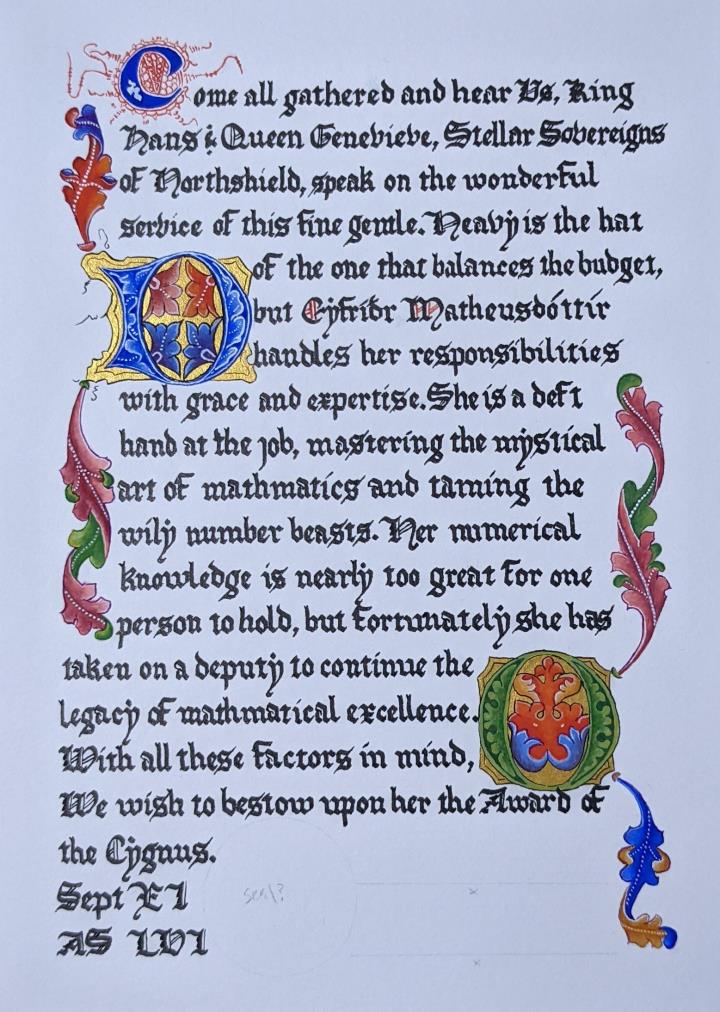 Come all gathered and hear Us, King
Hans & Queen Genevieve, Stellar Sovereigns
of Northshield, speak on the wonderful
service of this fine gentle. Heavy is the hat
of the one that balances the budget,
but Eyfriðr Matheusdóttir
handles her responsibilities
with grace and expertise. She is a deft
hand at the job, mastering the mystical
art of mathmatics and taming the
wily number beasts. Her numerical
knowledge is nearly too great for one
person to hold, but fortunately she has
taken on a deputy to continue the
legacy of mathmatical excellence.
With all these factors in mind,
We wish to bestow upon her the Award of
the Cygnus.
Sept XI
AS LVI
seal?
x
x